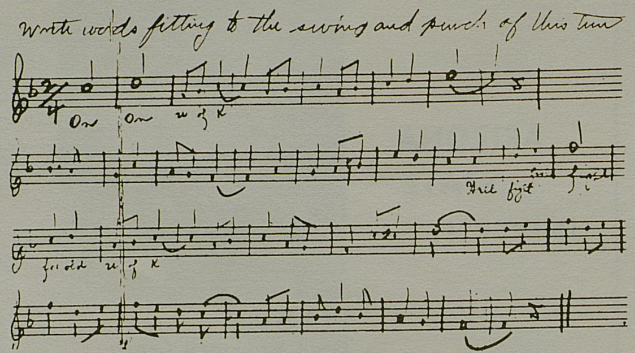 write words fitting to the swing and punch of this tune
On On U of K
We'll fight for
for old U of K